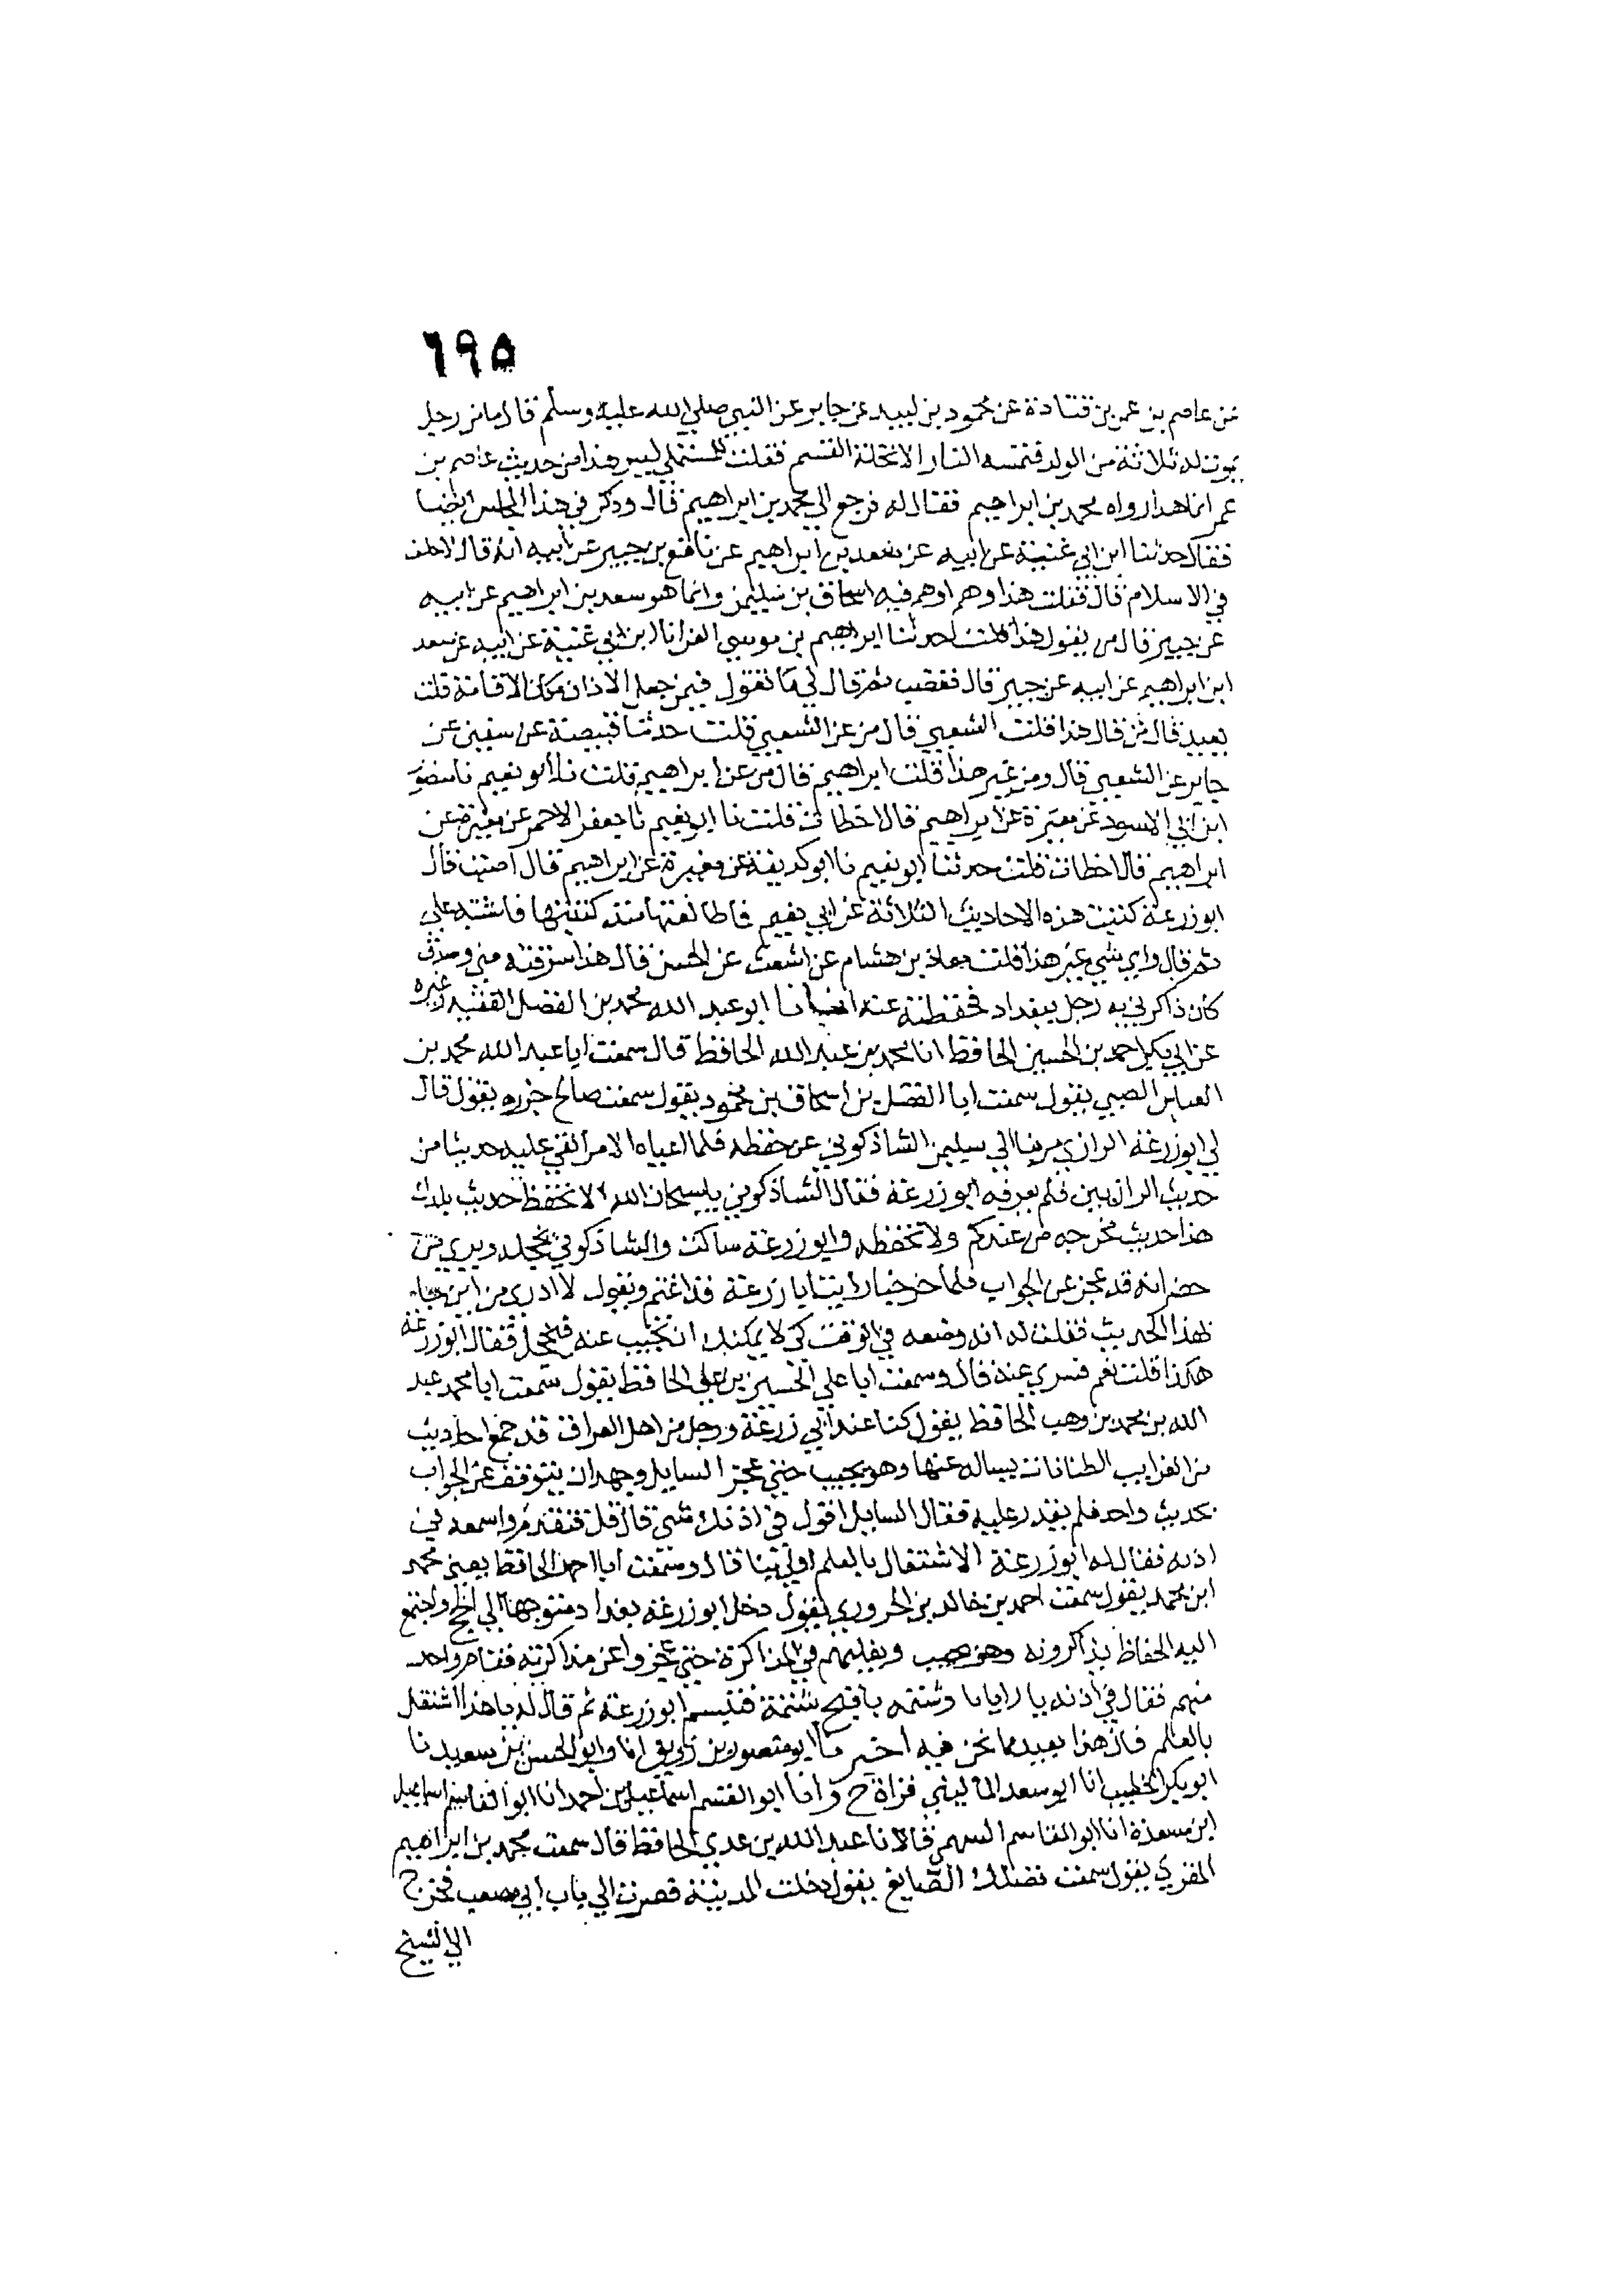 ٦٩٥
عن عاصم بن عمر بن قتادة عن محمود بن لبيد عن جابر عن النبي صلي الله عليه وسلم قال ما من رجل
يموت له ثلاثة من الولد فتمسه النار الا تحلة القسم فقلت للمستملي ليس هذا من حديث عاصم بن
عمر انما هذا رواه محمد بن ابراهيم فقال له فرجع الي محمد بن ابراهيم قال وذكر في هذا المجلس ايضا
فقال حدثنا ابن ابي غنية عن ابيه عن سعد بن ابراهيم عن نافع بن جبير عن ابيه انه قال لا حلف
في الاسلام قال فقلت هذا وهم اوهم فيه اسحاق بن سليمن وانما هو سعد بن ابراهيم عن ابيه
عن جبير قال من يقول هذا قلت حدثنا ابراهيم بن موسي الفرا نا ابن ابي غنية عن ابيه عن سعد
ابن ابراهيم عن ابيه عن جبير قال فغضب ثم قال لي ما تقول فيمن جعل الاذان مكان الاقامة قلت
يعيد قال من قال هذا قلت الشعبي قال من عن الشعبي قلت حدثنا قبيصة عن سفين عن
جابر عن الشعبي قال ومن غير هذا قلت ابراهيم قال من عن ابراهيم قلت نا ابو نعيم نا منصور
ابن ابي الاسود عن مغيرة عن ابراهيم قال اخطات قلت نا ابو نعيم نا جعفر الاحمر عن مغيرة عن
ابراهيم قال اخطات قلت حدثنا ابو نعيم نا ابو كدينة عن مغيرة عن ابراهيم قال اصبت قال
ابو زرعة كتبت هذه الاحاديث الثلاثة عن ابي نعيم فما طالعتها منذ كتبتها فاشتبه علي
ثم قال واي شي غير هذا قلت معاذ بن هشام عن اشعث عن الحسن قال هذا سرقته مني وصدق
كان ذاكرني به رجل ببغداد فحفظته عنه انبانا ابو عبد الله محمد بن الفضل الفقيه وغيره
عن ابي بكر احمد بن الحسين الحافظ انا محمد بن عبد الله الحافظ قال سمعت ابا عبد الله محمد بن
العباس الضبي يقول سمعت ابا الفضل بن اسحاق بن محمود يقول سمعت صالح جزره يقول قال
لي ابو زرعة الرازي مر بنا الي سليمن الشاذكوني عن حفظه فلما اعياه الامر القي عليه حديثا من
حديث الرازيين فلم يعرفه ابو زرعة فقال الشاذكوني يا سبحان الله لا تحفظ حديث بلدك
هذا حديث مخرجه من عندكم ولا تحفظه وابو زرعة ساكت والشاذكوني يخجله ويري من
حضر انه قد عجز عن الجواب فلما خرجنا رايت ابا زرعة قد اغتم ويقول لا ادري من اين جاء
هذا الحديث فقلت له انه وضعه في الوقت كي لا يمكنك ان تجيب عنه فتخجل فقال ابو زرعة
هكذا قلت نعم فسري عنه قال وسمعت ابا علي الحسين بن علي الحافظ يقول سمعت ابا محمد عبد
الله بن محمد بن وهب الحافظ يقول كنا عند ابي زرعة ورجل من اهل العراق قد جمع احاديث
من الغرايب الطنانات يساله عنها وهو يجيب حتي عجز السايل وجهد ان يتوقف عن الجواب
بحديث واحد فلم يقدر عليه فقال السايل اقول في اذنك شي قال قل فتقدم واسمعه في
اذنه فقال له ابو زرعة الاشتغال بالعلم اولي بنا قال وسمعت ابا احمد الحافظ يعني محمد
ابن محمد يقول سمعت احمد بن خالد بن الحروري يقول دخل ابو زرعة بغداد متوجها الي الحج واجتمع
اليه الحفاظ يذاكرونه وهو يجيب ويغلبهم في المذاكرة حتي عجزوا عن مذاكرته فقام واحد
منهم فقال في اذنه يا ابا وشتمه باقبح شتمة فتبسم ابو زرعة ثم قال له يا هذا اشتغل
بالعلم فان هذا بعيد مما نحن فيه اخبرنا ابو منصور بن زريق انا وابو الحسن بن سعيد نا
ابو بكر الخطيب انا ابو سعد الماليني قراة ح وانا ابو القسم اسماعيل بن احمد انا ابو القاسم اسماعيل
ابن مسعدة انا ابو القاسم السهمي قالا نا عبد الله بن عدي الحافظ قال سمعت محمد بن ابراهيم
المقري يقول سمعت فضلك الصايغ يقول دخلت المدينة فصرت الي باب ابي مصعب فخرج
الي الشيخ